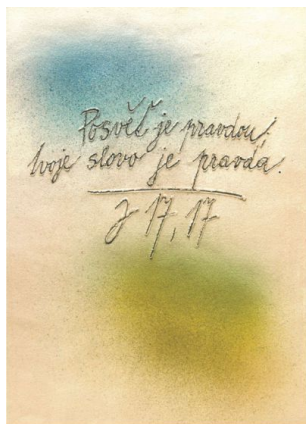 Posvěť je pravdou;
tvoje slovo je pravda.
J 17, 17